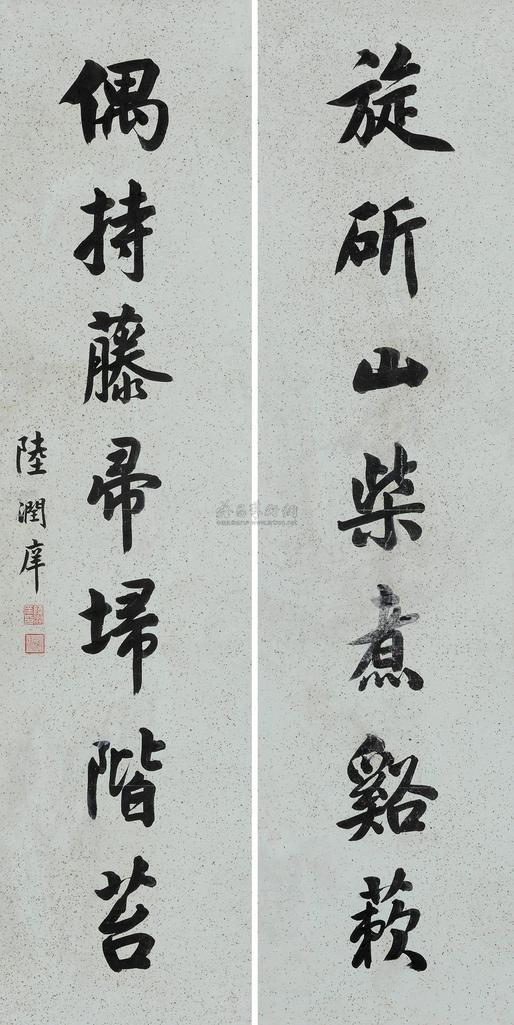 旋斫山柴煮谿蔌
偶持藤帚埽階苔
陸潤庠